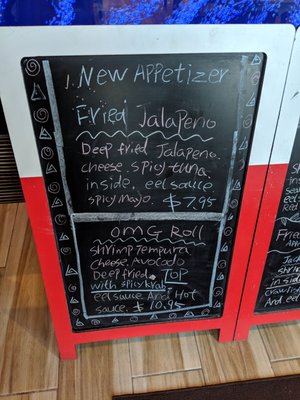 1. New Appetizer
Fried Jalapeno
Deep fried Jalapeno.
cheese. spicy tuna
inside. eel sauce
spicy mayo. $7.95
OMG Roll
shrimp Tempura
cheese, Avocado
Deep fried. Top
with spicy krab.
eel sauce And Hot
sauce. $10.95